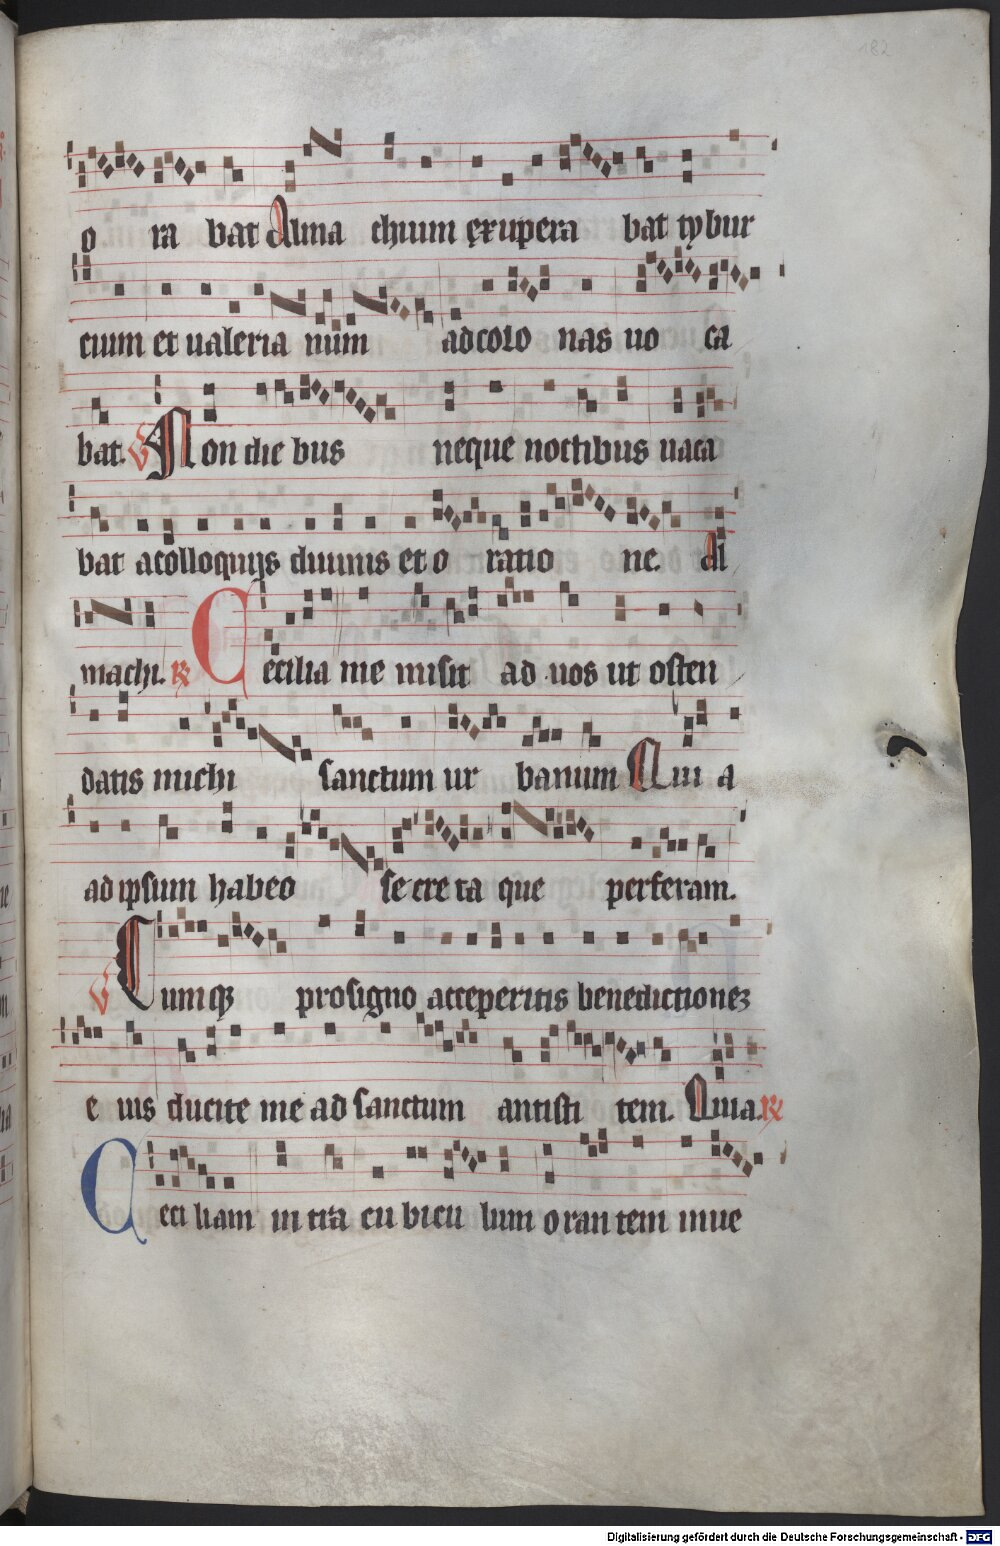 182
o ra bat Alma chium exupera bat tybur
cium et ualeria num ad colo nas uo ca
bat. V Non die bus neque noctibus uaca
bat a colloquijs diuinis et o ratio ne. Al
machi. R Cecilia me misit ad uos ut osten
datis michi sanctum ur banum Qui a
ad ipsum habeo se cre ta que perferam.
V Cumq prosigno acceperitis benedictionez
e ius ducite me ad sanctum antisti tem. Quia. R
Ceci liam in tra cu bicu lum o ran tem inue
Digitalisierung gefördert durch die Deutsche Forschungsgemeinschaft - DFG